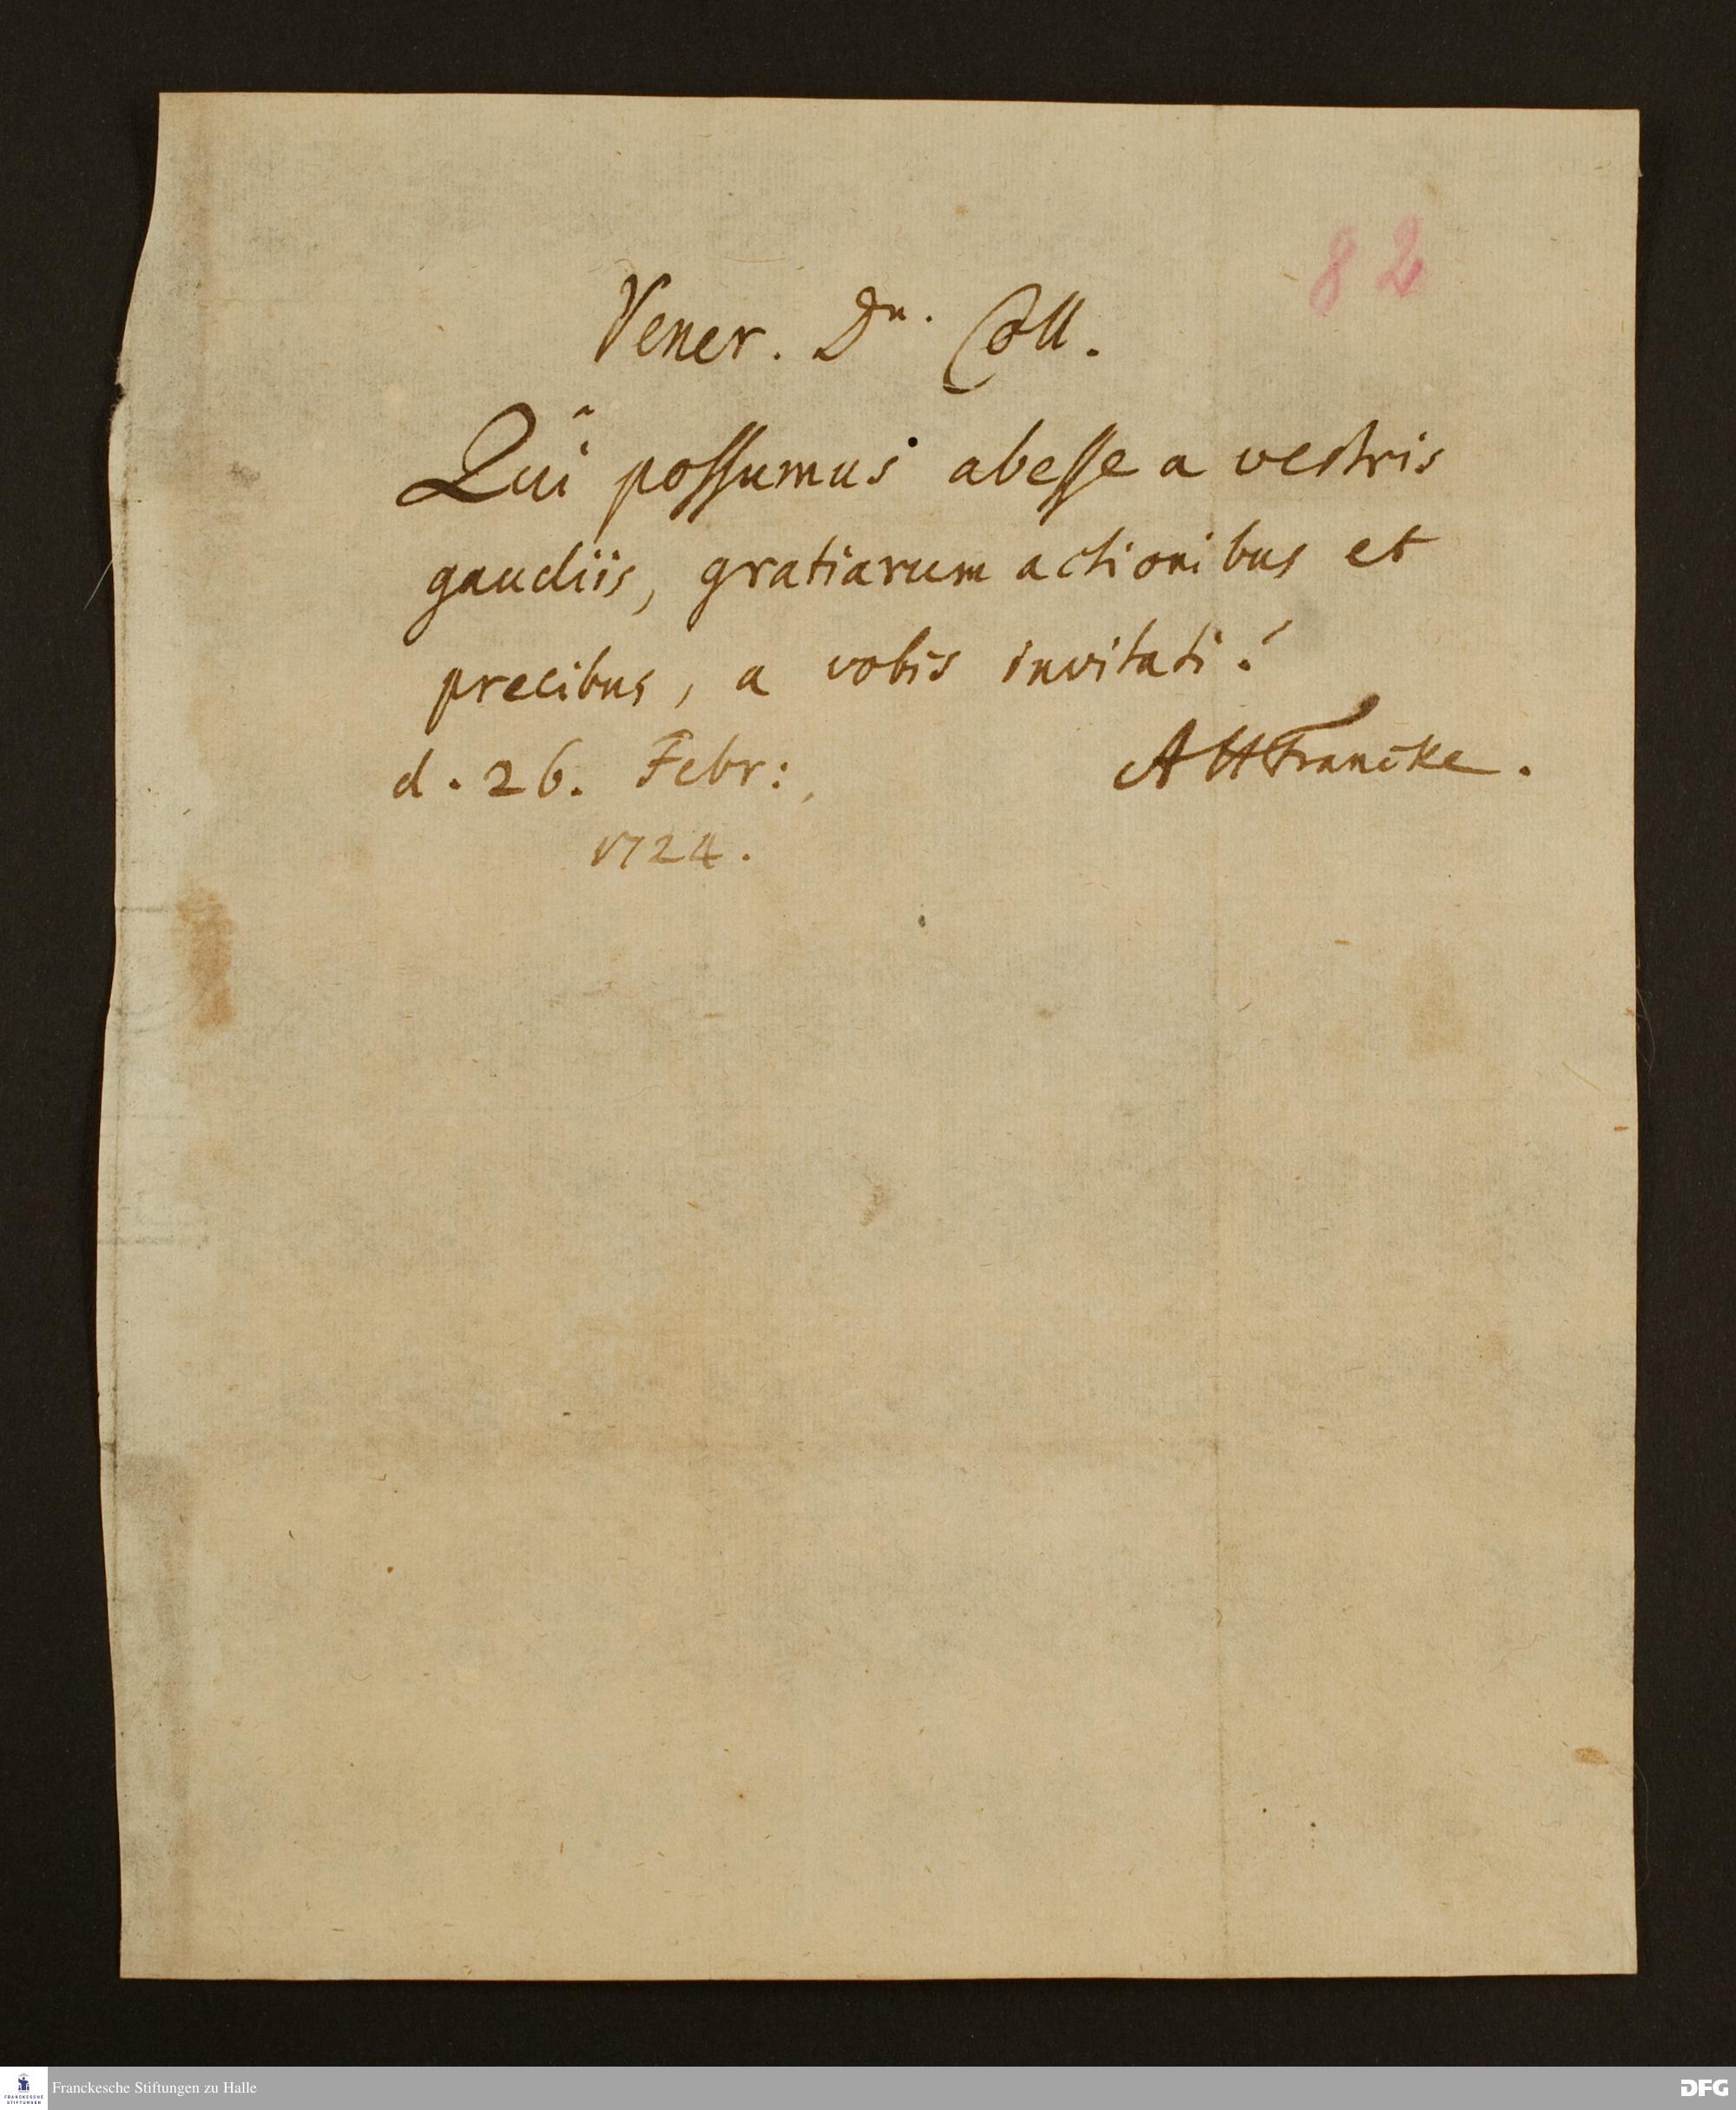 82
Vener. Dn. Coll.
Quî possumus abesse a vestris
gaudiis, gratiarum actionibus et
precibus, a vobis invitati?
AHFrancke.
d. 26. Febr:
1724.
FRANCKESCHE
STIFTUNGEN
Franckesche Stiftungen zu Halle
DFG